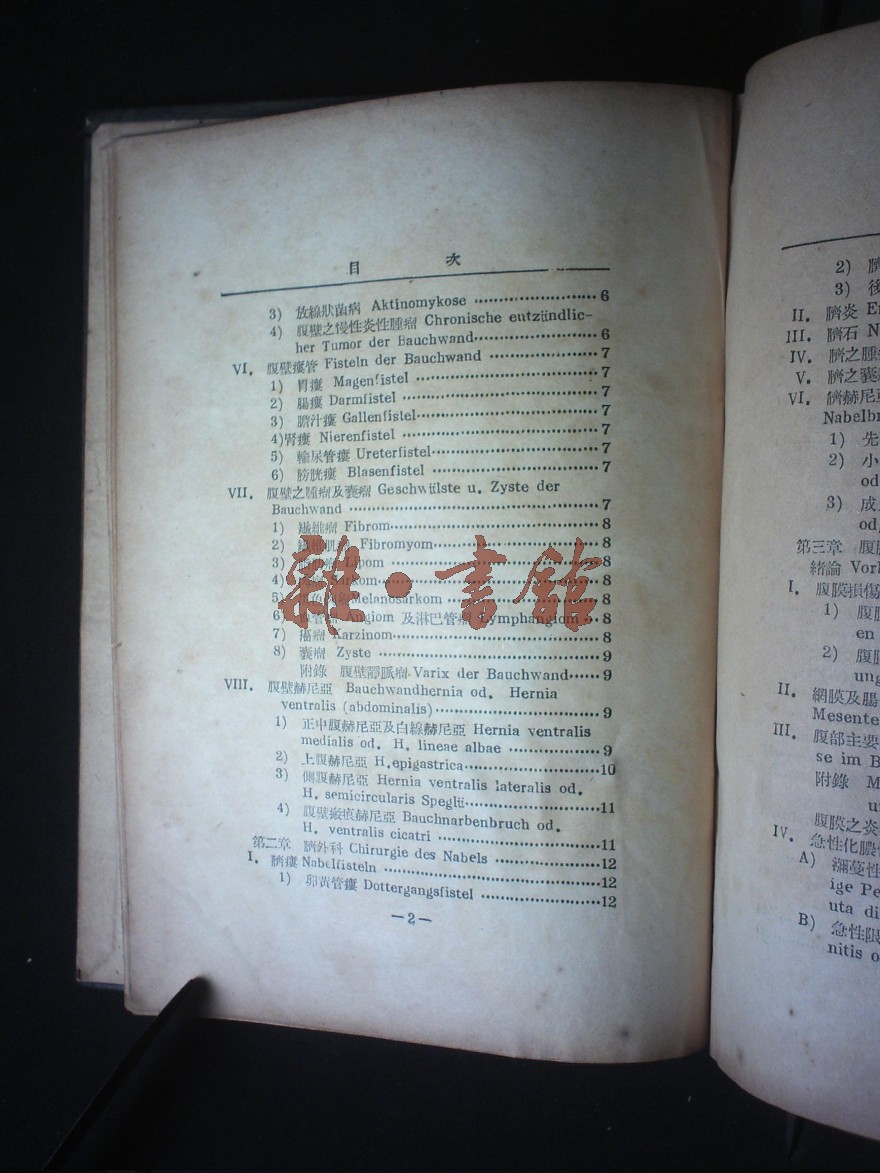 目 次
3) 放線狀菌病 Aktinomykose 6
4) 腹壁之慢性炎性腫瘤 Chronische entzündlic-
her Tumor der Bauchwand 6
VI. 腹壁瘻管 Fisteln der Bauchwand 7
1) 胃瘻 Magenfistel 7
2) 腸瘻 Darmfistel 7
3) 膽汁瘻 Gallenfistel 7
4)腎瘻 Nierenfistel 7
5) 輸尿管瘻 Ureterfistel 7
6) 膀胱瘻 Blasenfistel 7
VII. 腹壁之腫瘤及囊瘤 Geschwülste u. Zyste der
Bauchwand 7
1) 纖維瘤 Fibrom 8
2) 纖維肌 Fibromyom 8
3) Lipom 8
4) Sarkom 8
5) Melanosarkom 8
6) 管 Angiom 及淋巴管瘤 Lymphangiom 8
7) 癌瘤 Karzinom 8
8) 囊瘤 Zyste 9
附錄 腹壁靜脈瘤 Varix der Bauchwand 9
VIII. 腹壁赫尼亞 Bauchwandhernia od. Hernia
ventralis (abdominalis) 9
1) 正中腹赫尼亞及白線赫尼亞 Hernia ventralis
medialis od. H. lineae albae 9
2) 上腹赫尼亞 H.epigastrica 10
3) 側腹赫尼亞 Hernia ventralis lateralis od.
H. semicircularis Speglii 11
4) 腹壁瘢痕赫尼亞 Bauchnarbenbruch od.
H. ventralis cicatri 11
第二章 臍外科 Chirurgie des Nabels 12
I. 臍瘻 Nabelfisteln 12
1) 卵黃管瘻 Dottergangsfistel 12
—2—
雜·書館
2) 臍
3) 後
II. 臍炎
III. 臍石
IV. 臍之腫
V. 臍之囊
VI. 臍赫尼亞
Nabelbr
1) 先
2) 小
od
3) 成
od
第三章 腹膜
緒論 Vor
I. 腹膜損傷
1) 腹膜
en
2) 腹膜
ung
II. 網膜及腸
Mesente
III. 腹部主要
se im B
附錄 M
u
腹膜之炎
IV. 急性化膿
A) 瀰蔓性
ige Pe
uta di
B) 急性限
nitis o